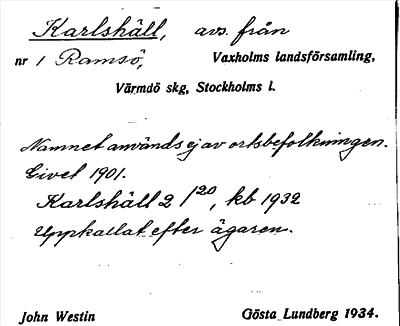 Karlshäll, avs. från
nr 1 Ramsö, Vaxholms landsförsamling,
Värmdö skg, Stockholms l.
Namnet används ej av ortsbefolkningen.
Givet 1901.
Karlshäll 2/20, kb 1932
Uppkallat efter ägaren.
John Westin Gösta Lundberg 1934.